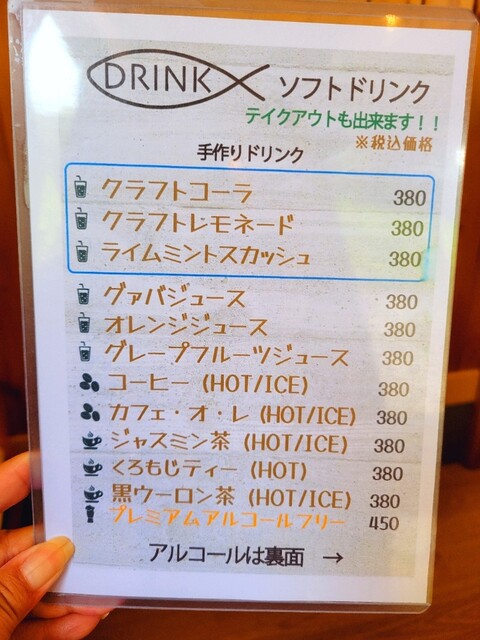 DRINK
ソフトドリンク
テイクアウトも出来ます！！
※税込価格
手作りドリンク
クラフトコーラ 380
クラフトレモネード 380
ライムミントスカッシュ 380
グァバジュース 380
オレンジジュース 380
グレープフルーツジュース 380
コーヒー (HOT/ICE) 380
カフェ・オ・レ (HOT/ICE) 380
ジャスミン茶 (HOT/ICE) 380
くろもじティー (HOT) 380
黒ウーロン茶 (HOT/ICE) 380
プレミアムアルコールフリー 450
アルコールは裏面 →